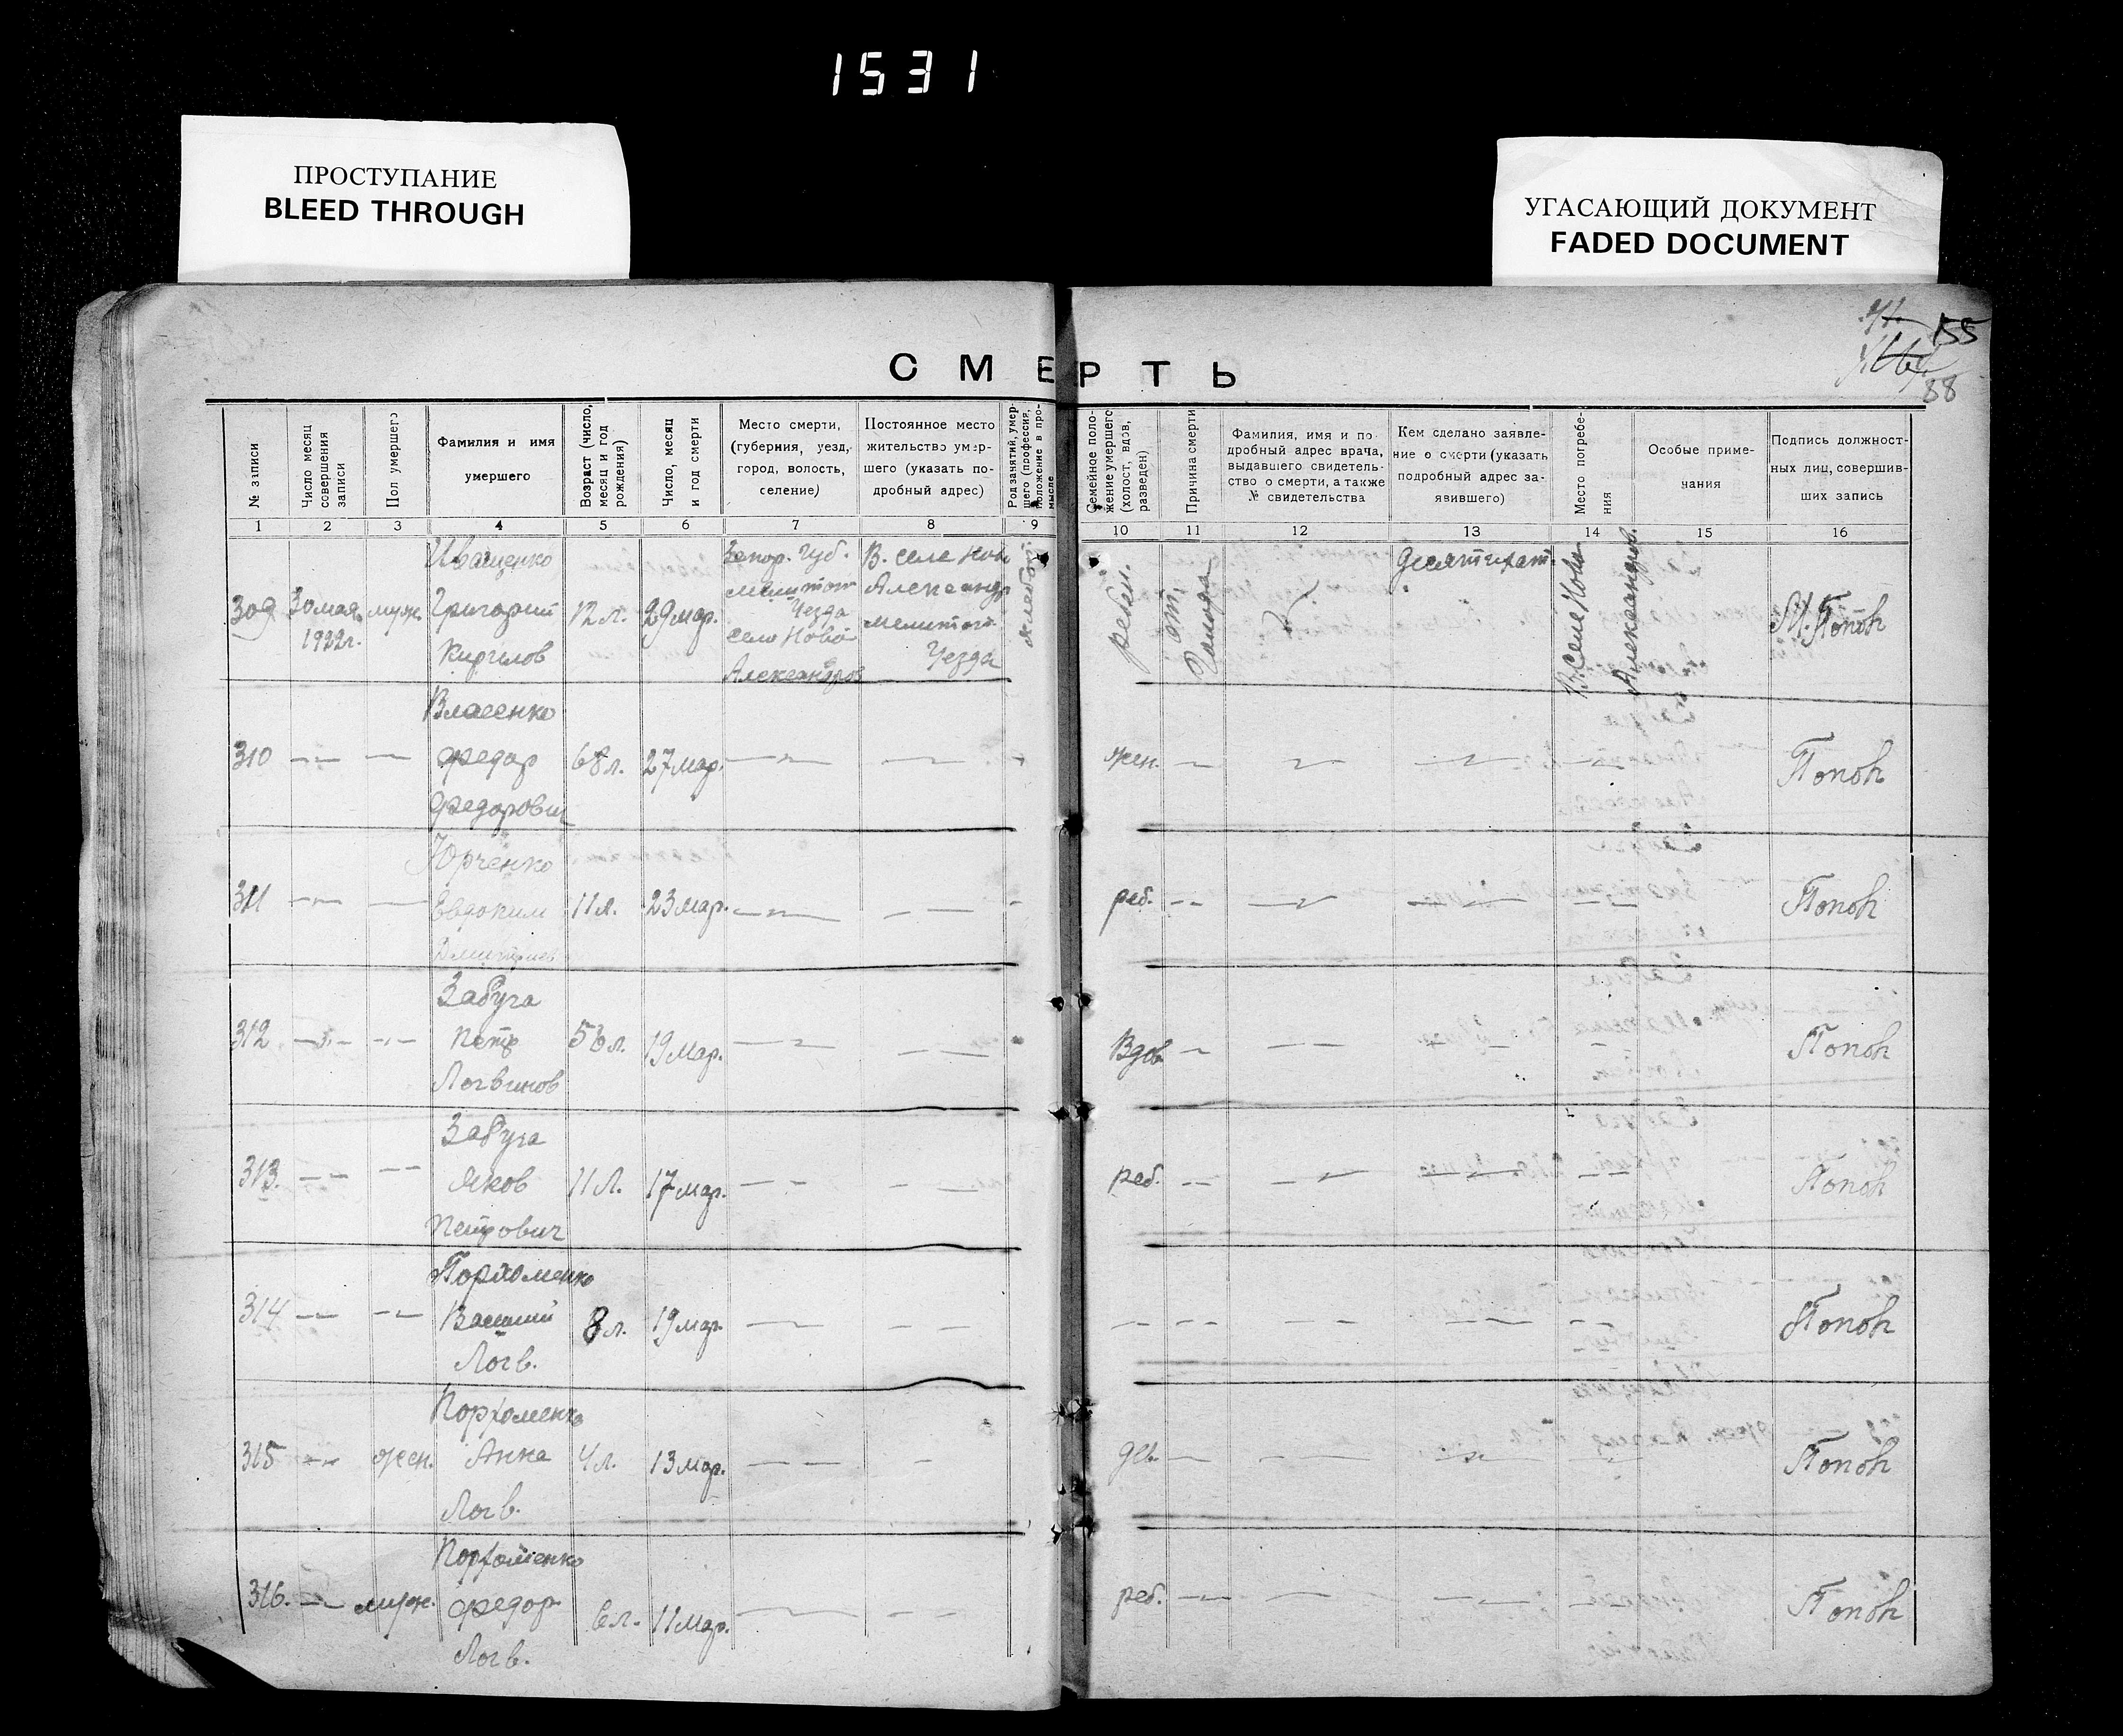 1531
ПРОСТУПАНИЕ
BLEED THROUGH
УГАСАЮЩИЙ ДОКУМЕНТ
FADED DOCUMENT
155
88
СМЕРТЬ
№ записи
Число месяц совершения записи
Пол умершего
Фамилия и имя умершего
Возраст (число, месяц и год рождения)
Число, месяц и год смерти
Место смерти, (губерния, уезд, город, волость, селение)
Постоянное место жительство умершего (указать подробный адрес)
Род занятий, умершего (профессия, положение в промысле
Семейное положение умершего (холост, вдов, разведен)
Причина смерти
Фамилия, имя и подробный адрес врача, выдавшего свидетельство о смерти, а также № свидетельства
Кем сделано заявление о смерти (указать подробный адрес заявившего)
Место погребения
Особые примечания
Подпись должностных лиц, совершивших запись
1 2 3 4 5 6 7 8 9 10 11 12 13 14 15 16
Иващенко
309 30 мая 1922г. муж. Григорий 12 л. 29 мар.
Кирилов
Запор. Губ.
мелитоп
Уезда
село Ново
Александров
В. селе Нов
Александр
мелитоп
Уезда
хлебоп.
ребен.
от голода
В селе Ново
Александров.
М. Попов
Власенко
310 — — Федор 68 л. 27 мар. — — жен. — — — — Попов
Федорович
Юрченко
311 — — Евдоким 11 л. 23 мар. — — реб. — — — — Попов
Дмитриев
Забуга
312 — — Петр 56 л. 19 мар. — — Вдов — — — — Попов
Логвинов
Забуга
313. — — Яков 11 л. 17 мар. — — реб. — — — — Попов
Петрович
Порхоменко
314 — — Василий 8 л. 19 мар. — — — — — — — Попов
Логв.
Порхоменко
315 — жен. Анна 4 л. 13 мар. — — дев. — — — — Попов
Логв.
Порхоменко
316. — муж. Федор 6 л. 11 мар. — — реб. — — — — Попов
Логв.